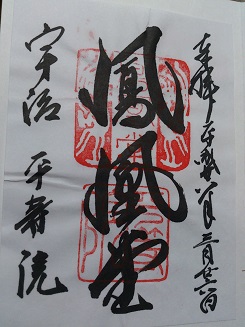 奉拝 平成八年三月廿六日
鳳凰堂
宇治 平等院